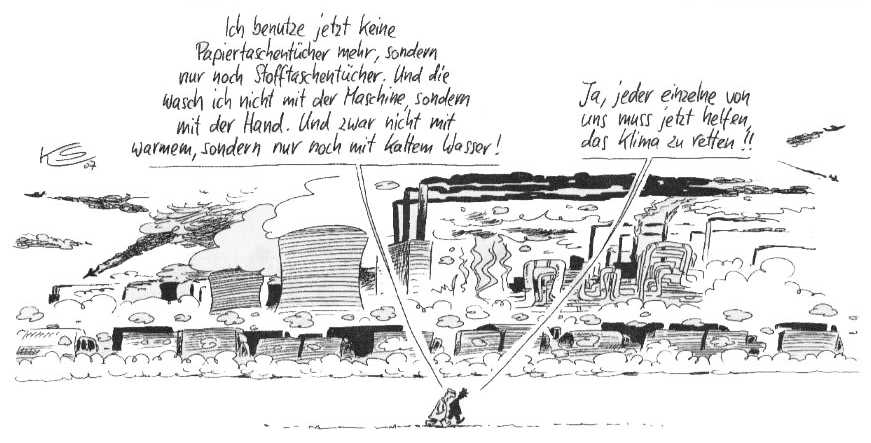 Ich benutze jetzt keine
Papiertaschentücher mehr, sondern
nur noch Stofftaschentücher. Und die
wasch ich nicht mit der Maschine, sondern
mit der Hand. Und zwar nicht mit
warmem, sondern nur noch mit kaltem Wasser!
Ja, jeder einzelne von
uns muss jetzt helfen,
das Klima zu retten!!
KS
07